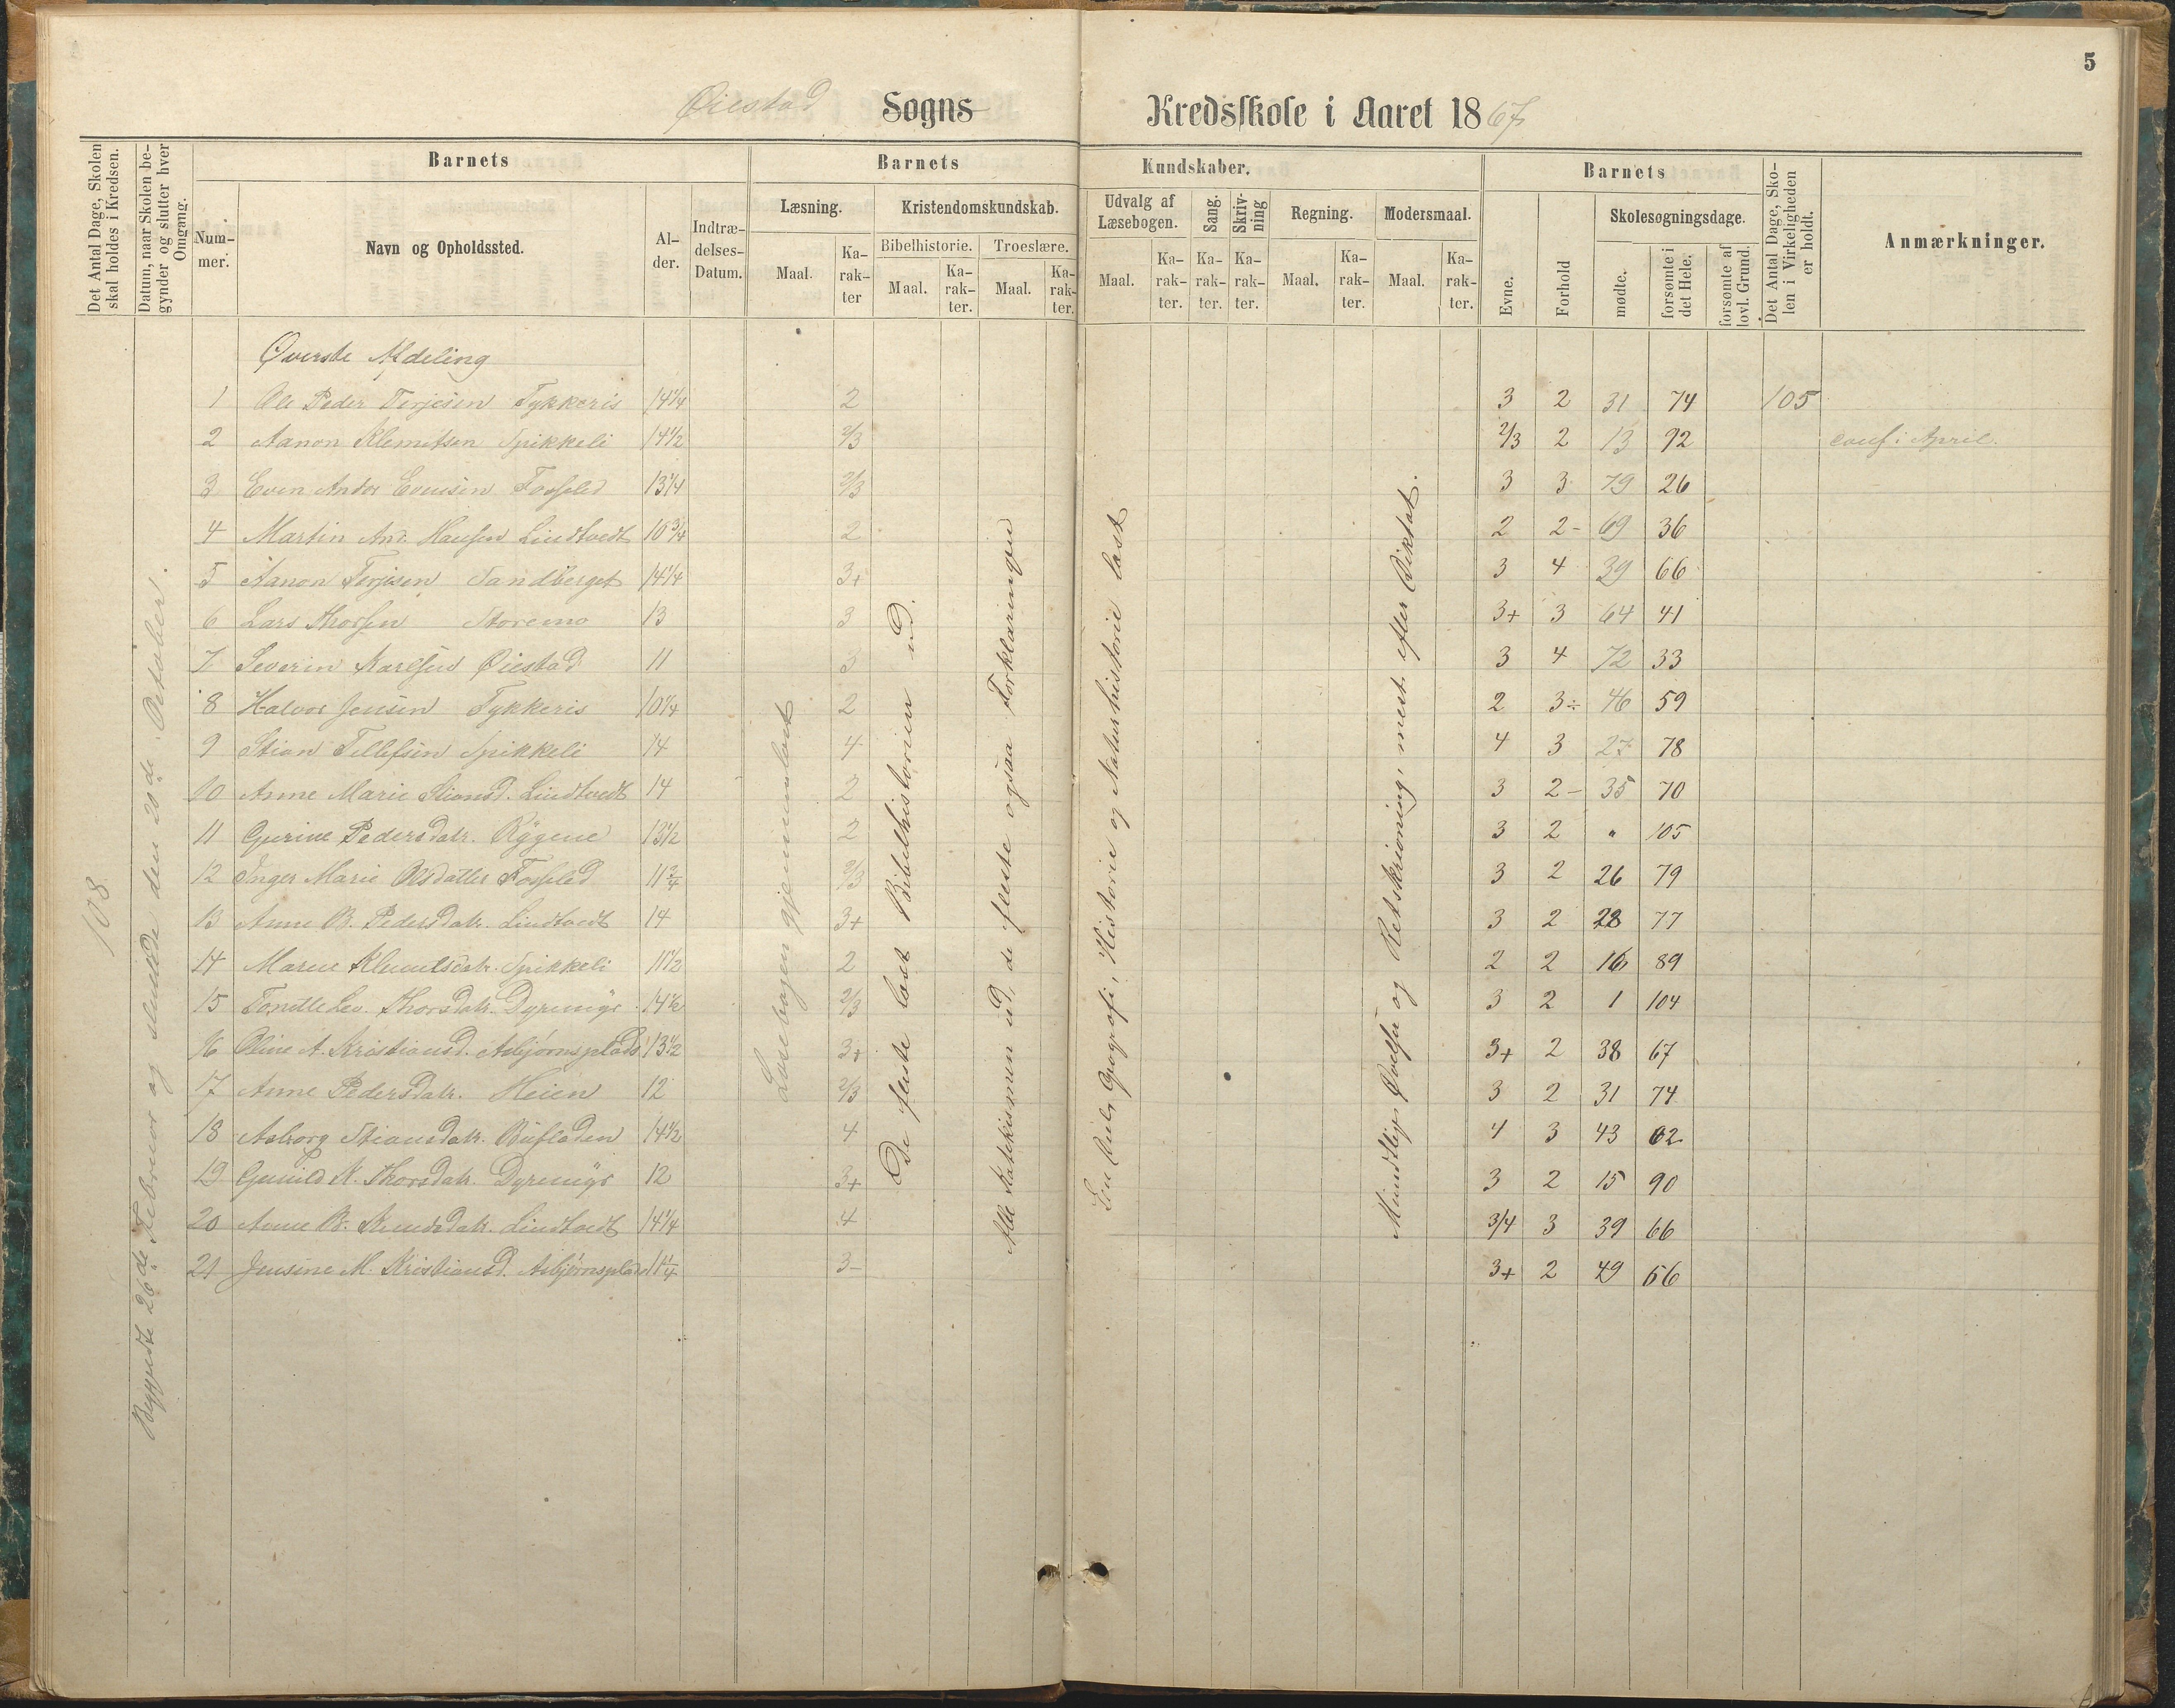 5
Øiestad Sogns Kredsskole i Aaret 1867
Det Antal Dage, Skolen skal holdes i Kredsen.
Datum, naar Skolen begynder og slutter hver Omgang.
Barnets
Nummer.
Navn og Opholdssted.
Alder.
Indtrædelses-Datum.
Barnets Kundskaber.
Læsning.
Maal.
Karakter
Kristendomskundskab.
Bibelhistorie.
Maal.
Karakter.
Troeslære.
Maal.
Karakter.
Udvalg af Læsebogen.
Maal.
Karakter.
Sang.
Karakter.
Skrivning
Karakter.
Regning.
Maal.
Karakter.
Modersmaal.
Maal.
Karakter.
Barnets
Evne.
Forhold
Skolesøgningsdage.
mødte.
forsømte i det Hele.
forsømte af lovl. Grund.
Det Antal Dage, Skolen i Virkeligheden er holdt.
Anmærkninger.
Øverste Afdeling
1 Ole Peder Terjesen Tykkeris 14 1/4 2 3 2 31 74 105
2 Aanon Klemitsen Spikkeli 14 1/2 2/3 2/3 2 13 92 conf. i April.
3 Even Andor Evensen Fosseled 13 1/4 2/3 3 3 79 26
4 Martin And. Hansen Lindtvedt 10 3/4 2 2 2- 69 36
5 Aanon Terjesen Sandberget 14 1/4 3+ 3 4 39 66
6 Lars Thorsen Storemo 13 3 3+ 3 64 41
7 Severin Karlsen Øiestad 11 3 3 4 72 33
8 Halvor Jensen Tykkeris 10 1/4 2 2 3÷ 46 59
9 Stian Tellefsen Spikkeli 14 4 4 3 27 78
10 Anne Marie Stiansd. Lindtvedt 14 2 3 2- 35 70
11 Gurine Pedersdatr. Rygene 13 1/2 2 3 2 " 105
12 Inger Marie Olsdatter Fosseled 11 3/4 2/3 3 2 26 79
13 Anne B. Pedersdatr. Lindtvedt 14 3+ 3 2 28 77
14 Maren Klemetsdatr. Spikkeli 11 1/2 2 2 2 16 89
15 Tomille Lev. Thorsdatr. Dyremyr 14 1/2 2/3 3 2 1 104
16 Oline A. Kristiansd. Asbjørnsplads 13 1/2 3+ 3+ 2 38 67
17 Anne Pedersdatr. Heien 12 2/3 3 2 31 74
18 Aslaug Stiansdatr. Bufladen 14 1/2 4 4 3 43 62
19 Gunild K. Thorsdatr. Dyremyr 12 3+ 3 2 15 90
20 Anne B. Knudsdatr. Lindtvedt 14 1/4 4 3/4 3 39 66
21 Jensine M. Kristiansd. Asbjørnsplads 11 1/4 3- 3+ 2 49 56
108
Begyndte 26de Februar og sluttede den 20de Oktober.
Læsebogen gjennemlæst
De fleste læst Bibelhistorien ud.
Alle Katekismen ud, de fleste ogsaa Forklaringen
Geografi, Historie og Naturhistorie læst
Mundtlige Øvelser og Retskrivning, mest efter Diktat.